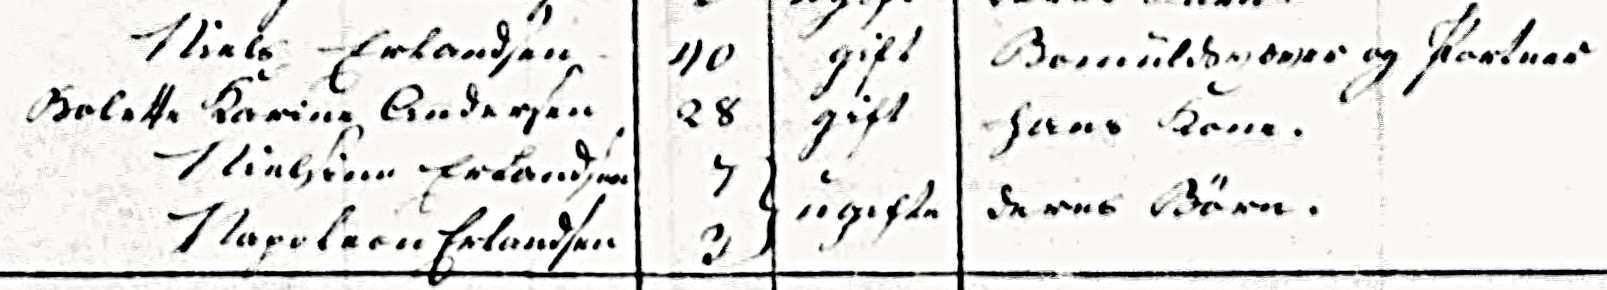 Niels Erlandsen 40 gift Bomuldsvæver og Portner
Bolette Karine Andersen 28 gift hans Kone.
Nielsine Erlandsen 7 } ugifte deres Börn.
Napoleon Erlandsen 3